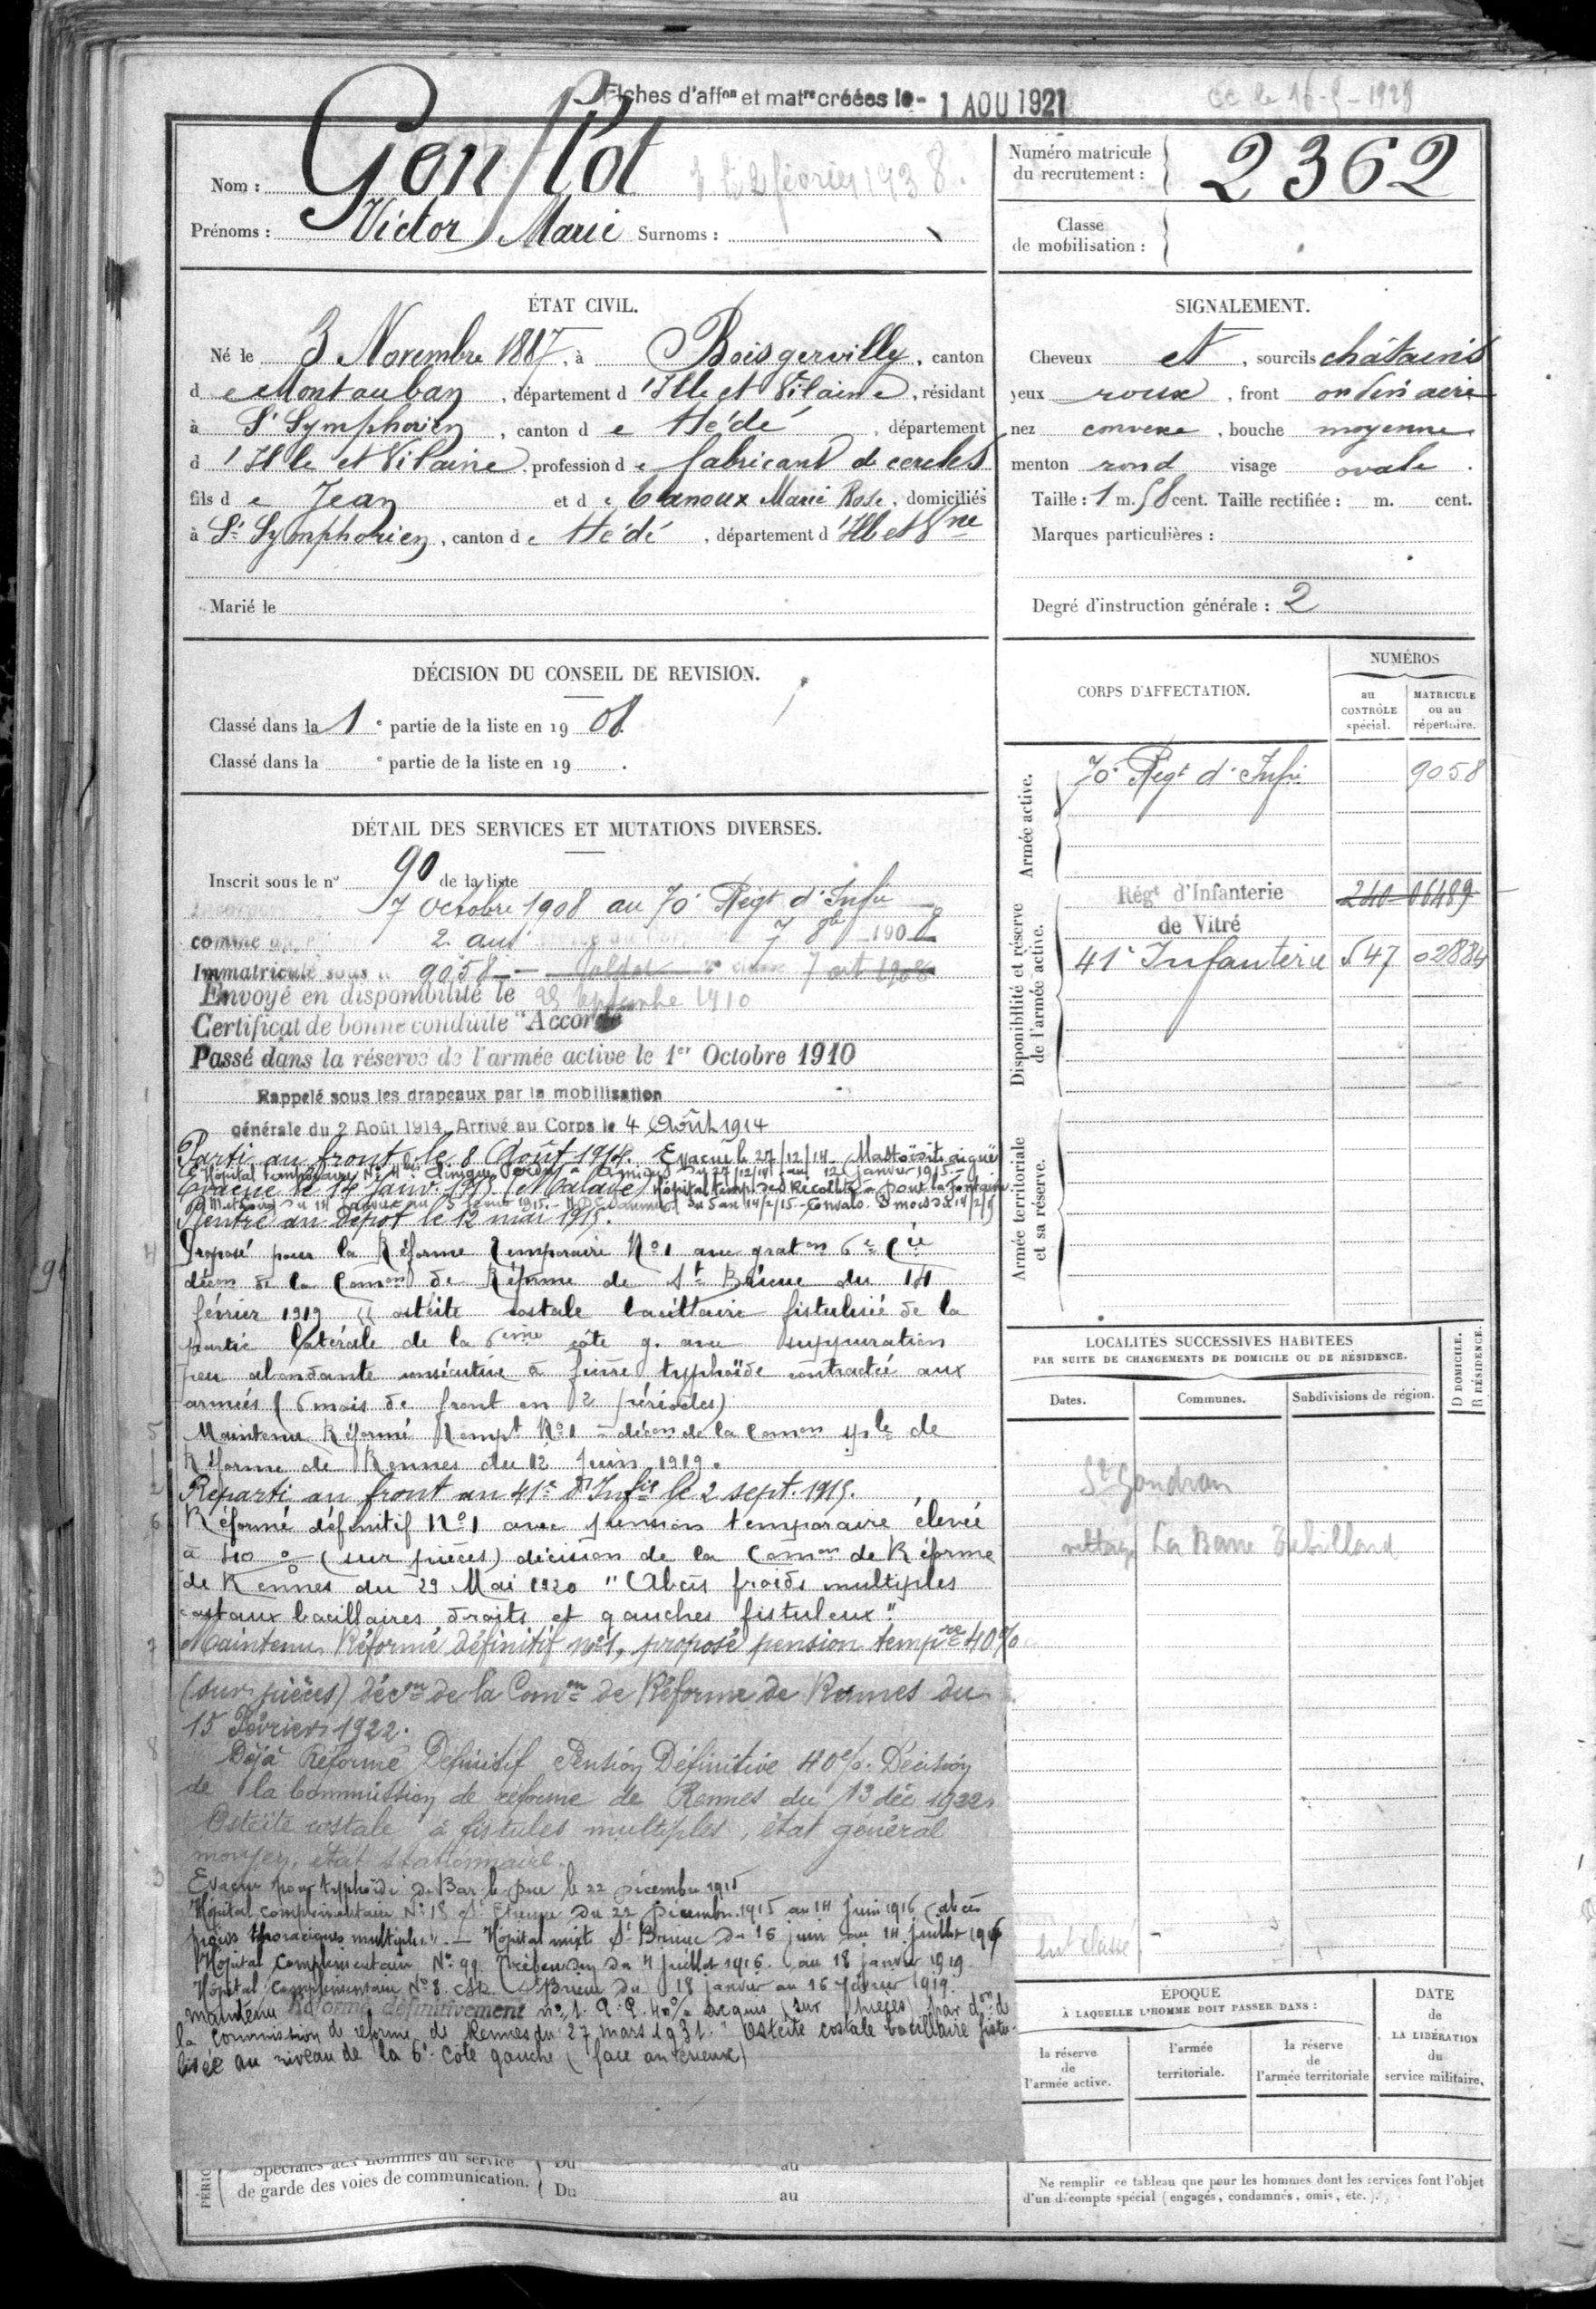 Fiches d'affon et matre créées le - 1 AOU 1921
CC le 16-9-1929
Nom : Gonflot
2 février 1938.
Prénoms : Victor Marie Surnoms :
Numéro matricule du recrutement : 2362
Classe de mobilisation :
ÉTAT CIVIL.
Né le 3 Novembre 1887, à Boisgervilly, canton
d e Montauban, département d'Ille et Vilaine, résidant
à St Symphorien, canton d e Hédé, département
d'Ille et Vilaine, profession d e fabricant de cercles
fils d e Jean et d e Marie Rose, domiciliés
à St Symphorien, canton d e Hédé, département d'Ill et Vne
Marié le
SIGNALEMENT.
Cheveux et, sourcils châtains
yeux roux, front ordinaire
nez convexe, bouche moyenne
menton rond visage ovale.
Taille : 1 m. 58 cent. Taille rectifiée : m. cent.
Marques particulières :
Degré d'instruction générale : 2
DÉCISION DU CONSEIL DE REVISION.
Classé dans la 1e partie de la liste en 1908.
Classé dans la e partie de la liste en 19 .
DÉTAIL DES SERVICES ET MUTATIONS DIVERSES.
Inscrit sous le n° 90 de la liste
7 Octobre 1908 au 70e Régt d'Infie
comme 2 ans 7 8bre 1908
Immatriculé sous le 9058 - Soldat 2e classe 7 oct 1908
Envoyé en disponibilité le 25 Septembre 1910
Certificat de bonne conduite "Accordé
Passé dans la réserve de l'armée active le 1er Octobre 1910
Rappelé sous les drapeaux par la mobilisation
générale du 2 Août 1914. Arrivé au Corps le 4 Août 1914
Parti au front le 8 Août 1914. Evacué le 27/12/14. Mastoïdite aiguë
Hôpital temporaire N° Clinique Amiens du 27/12/14 au 12 janvier 1915 -
Evacué le 14 Janv. 1915 (Malade) Hôpital temp. des Récollets
du 14 janvier au 5 février 1915. - du 5 au 14/2/15 - Convalo. 3 mois du 14/2/15
Rentré au Dépôt le 12 mai 1915.
4 Proposé pour la Réforme Temporaire N°1 avec graton 6e Cie
décon de la Comon de Réforme de St Brieuc du 14
février 1919 "ostéite costale bacillaire fistulisée de la
partie latérale de la 6ème côte g. avec suppuration
peu abondante consécutive à fièvre typhoïde contractée aux
armées (6 mois de front en 2 périodes)
5 Maintenu Réformé Tempt N°1 - décon de la Comon sple de
Réforme de Rennes du 12 Juin 1919.
2 Réparti au front au 41e d'Infie le 2 sept. 1915.
6 Réformé définitif N°1 avec pension temporaire élevée
à 40 % (sur pièces) décision de la Comon de Réforme
de Rennes du 29 Mai 1920 "Abcès froids multiples
costaux bacillaires droits et gauches fistuleux".
7 Maintenu Réformé définitif n°1, proposé pension tempre 40%
(sur pièces) décon de la Comon de Réforme de Rennes du
15 Février 1922.
8 Déjà Réformé Définitif Pension Définitive 40%. Décision
de la Commission de réforme de Rennes du 13 déc 1922.
Ostéite costale à fistules multiples, état général
moyen, état stationnaire.
3 Evacué pour typhoïde de Bar le Duc le 22 Décembre 1915
Hôpital complémentaire N° 18 St Etienne du 22 Décembre 1915 au 14 Juin 1916 (abcès
froids thoraciques multiples". - Hôpital mixte St Brieuc du 16 juin au 14 Juillet 1916
Hôpital Complémentaire N° 99 du 4 juillet 1916 au 18 janvier 1919.
Hôpital Complémentaire N° 8. St Brieuc du 18 janvier au 16 février 1919.
maintenu Réformé définitivement n° 1. P.P. 40% acquis (sur pièces) par don d
la Commission de réforme de Rennes du 27 mars 1931. "Ostéite costale bacillaire fistu-
lisée au niveau de la 6e côte gauche (face antérieure)
Spéciales aux hommes du service Du au
de garde des voies de communication. Du au
CORPS D'AFFECTATION.
NUMÉROS
au CONTRÔLE spécial.
MATRICULE ou au répertoire.
Armée active.
70e Régt d'Infie 9058
Disponibilité et réserve de l'armée active.
Régt d'Infanterie 240 06489
de Vitré
41e Infanterie 547 02884
Armée territoriale et sa réserve.
LOCALITÉS SUCCESSIVES HABITÉES
PAR SUITE DE CHANGEMENTS DE DOMICILE OU DE RÉSIDENCE.
D DOMICILE. R RÉSIDENCE.
Dates. Communes. Subdivisions de région.
St Gondran
village La Barre
ÉPOQUE
À LAQUELLE L'HOMME DOIT PASSER DANS :
la réserve de l'armée active.
l'armée territoriale.
la réserve de l'armée territoriale
DATE de LA LIBÉRATION du service militaire.
Ne remplir ce tableau que pour les hommes dont les services font l'objet
d'un décompte spécial (engagés, condamnés, omis, etc.).